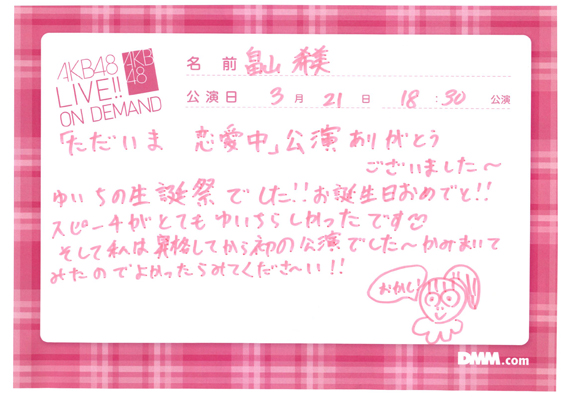 AKB48
LIVE!!
ON DEMAND
AKB
48
名 前 畠山 希美
公演日 3 月 21 日 18 : 30 公演
「ただいま 恋愛中」公演ありがとう
ございました〜
ゆいちの生誕祭でした!!お誕生日おめでと!!
スピーチがとてもゆいちらしかったです♡
そして私は昇格してから初の公演でした〜かみまいて
みたのでよかったらみてくださ〜い!!
おかし!
DMM.com